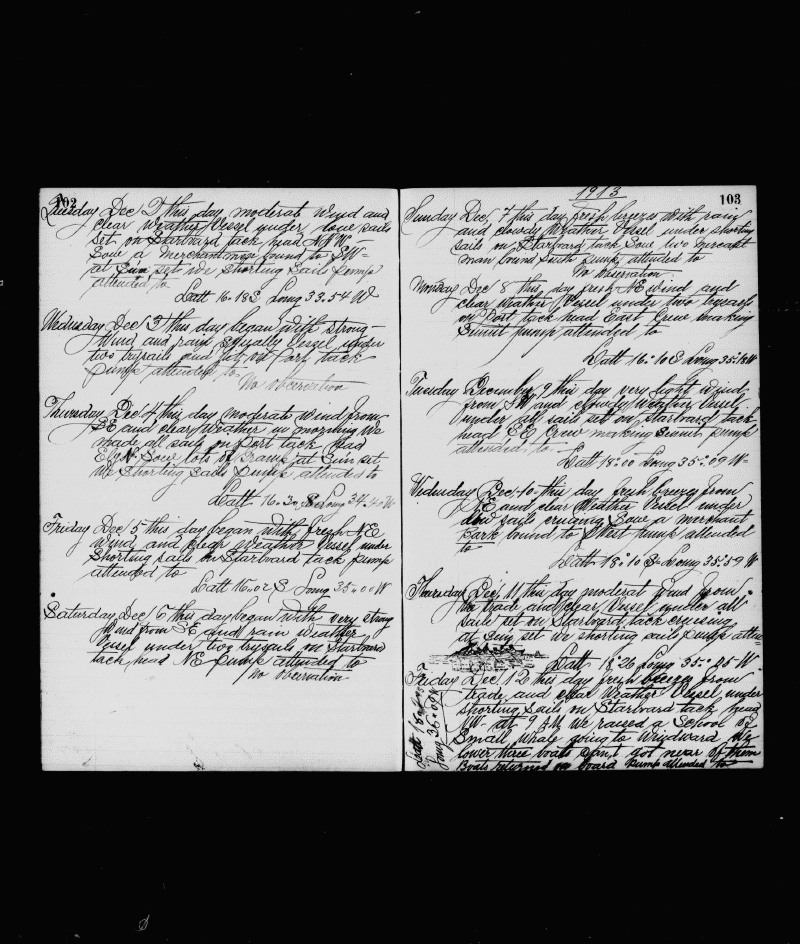 102
Tuesday Dec 2 this day moderate wind and
clear Weather Vessel under lowe sails
set on Starbard tack head NNW
Sow a Merchantman bound to SW
at Sun set we shorting sail pump
attended to
Latt 16.18 S Long 33.54 W
Wednesday Dec 3 this day began with strong
Wind and rain squally Vessel under
two trysails and jib on Port tack
pump attended to
No observation
Thursday Dec 4 this day moderate wind from
SE and clear Weather in morning We
made all sails on Port tack Head
EbyN Sow lots of Gramp at Sun set
We shorting sails Pump attended to
Latt 16.30 S Long 34.40 W
Friday Dec 5 this day began with fresh NE
Wind and clear Weather Vessel under
Shorting sails on Starbard tack pump
attended to
Latt 16.02 S Long 35.00 W
Saturday Dec 6 this day began with very strong
Wind from SE and rain weather
Vessel under two trysails on Starbard
tack head NE pump attended to
No obcernation
1913
103
Sunday Dec 7 this day fresh breeze with rain
and clowdy Weather Vessel under shorting
sails on Starbard tack Sow two mercant
man bound South pump attended to
No observation
Monday Dec 8 this day fresh NE wind and
clear Weather Vessel under two
on Port tack head East Crew making
Sinnit pump attended to
Latt 16:10 S Long 35:18 W
Tuesday December 9 this day very light wind
from SW and clowdy weather Vessel
under all sail set on Starbard tack
head SE Crew making Sinnit pump
attended to
Latt 18:00 Long 35:09 W
Wednesday Dec 10 this day fresh breeze from
NE and clear Weather Vessel under
low sails cruiging Sow a merchant
Bark bound to West pump attended
to
Latt 18:10 S Long 35:59 W
Thursday Dec 11 this day moderat Wind from
the trade and clear Vessel under all
sails set on Starbard tack cruging
at Sun set we shorting sail pump atten
Latt 18°26 Long 35:25 W
Friday Dec 12 this day fresh breeze from
trade and clear Weather Vessel under
Shorting Sails on Starbard tack head
at 9 AM We raised a School of
Small Whale going to Windward We
lower three boats got near of them
Boats returned on board Pump attended to
Latt
Long 36:09 W